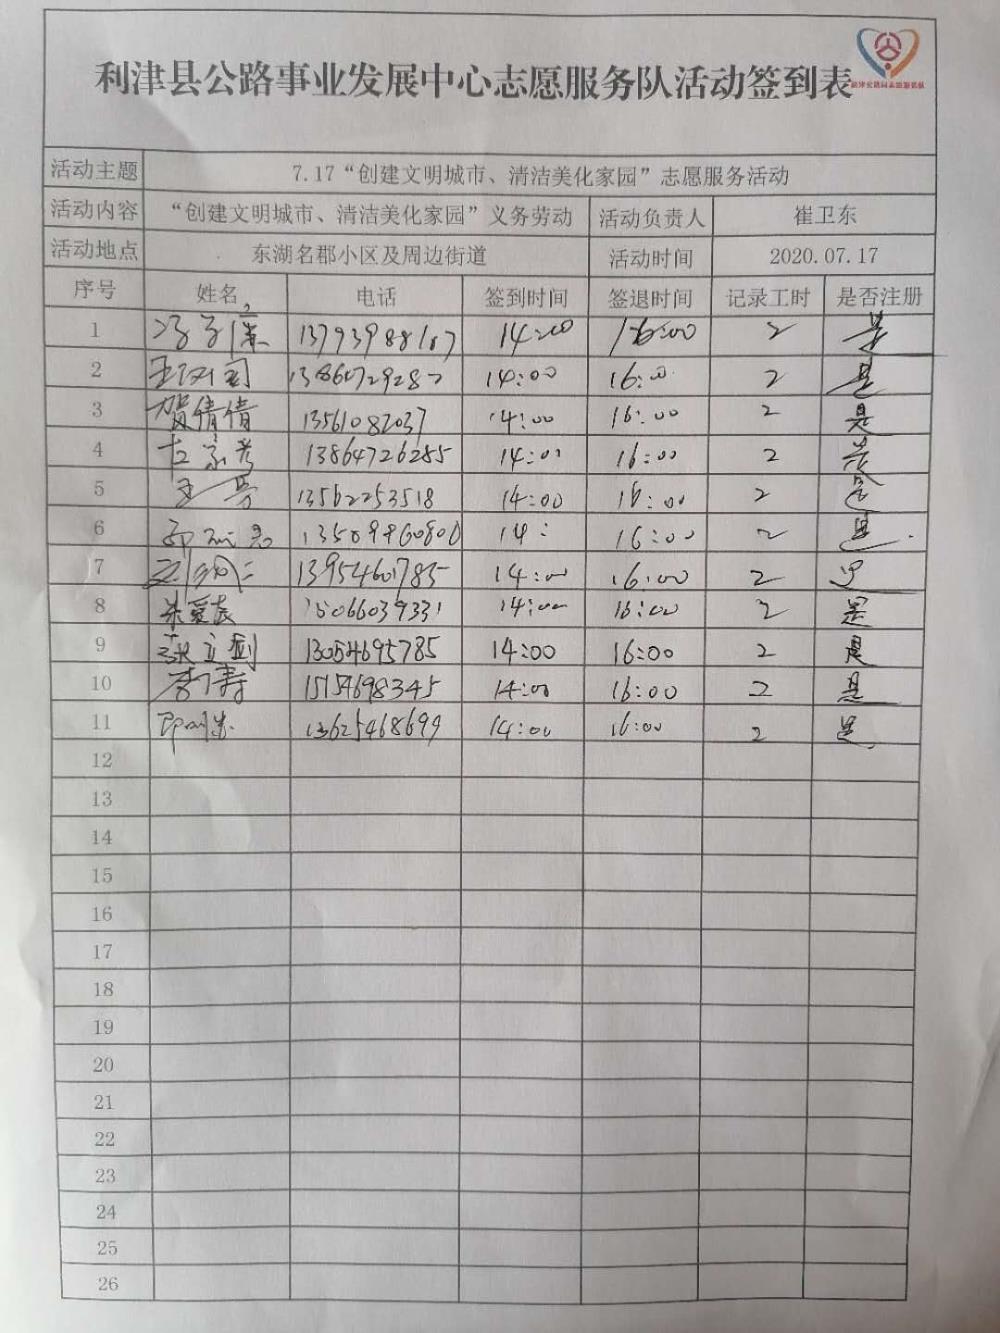 利津县公路事业发展中心志愿服务队活动签到表
活动主题 7.17“创建文明城市、清洁美化家园”志愿服务活动
活动内容 “创建文明城市、清洁美化家园”义务劳动 活动负责人 崔卫东
活动地点 东湖名郡小区及周边街道 活动时间 2020.07.17
序号 姓名 电话 签到时间 签退时间 记录工时 是否注册
1 13793988167 14:00 16:00 2 是
2 13864729282 14:00 16:00 2 是
3 贺倩倩 13561082037 14:00 16:00 2 是
4 13864726285 14:00 16:00 2 是
5 王芳 13562253518 14:00 16:00 2 是
6 14: 16:00 2 是.
7 13954601785 14:00 16:00 2 是
8 15066039331 14:00 16:00 2 是
9 张立剑 13054695785 14:00 16:00 2 是
10 李寿 15154698345 14:00 16:00 2 是
11 13625468699 14:00 16:00 2 是
12
13
14
15
16
17
18
19
20
21
22
23
24
25
26